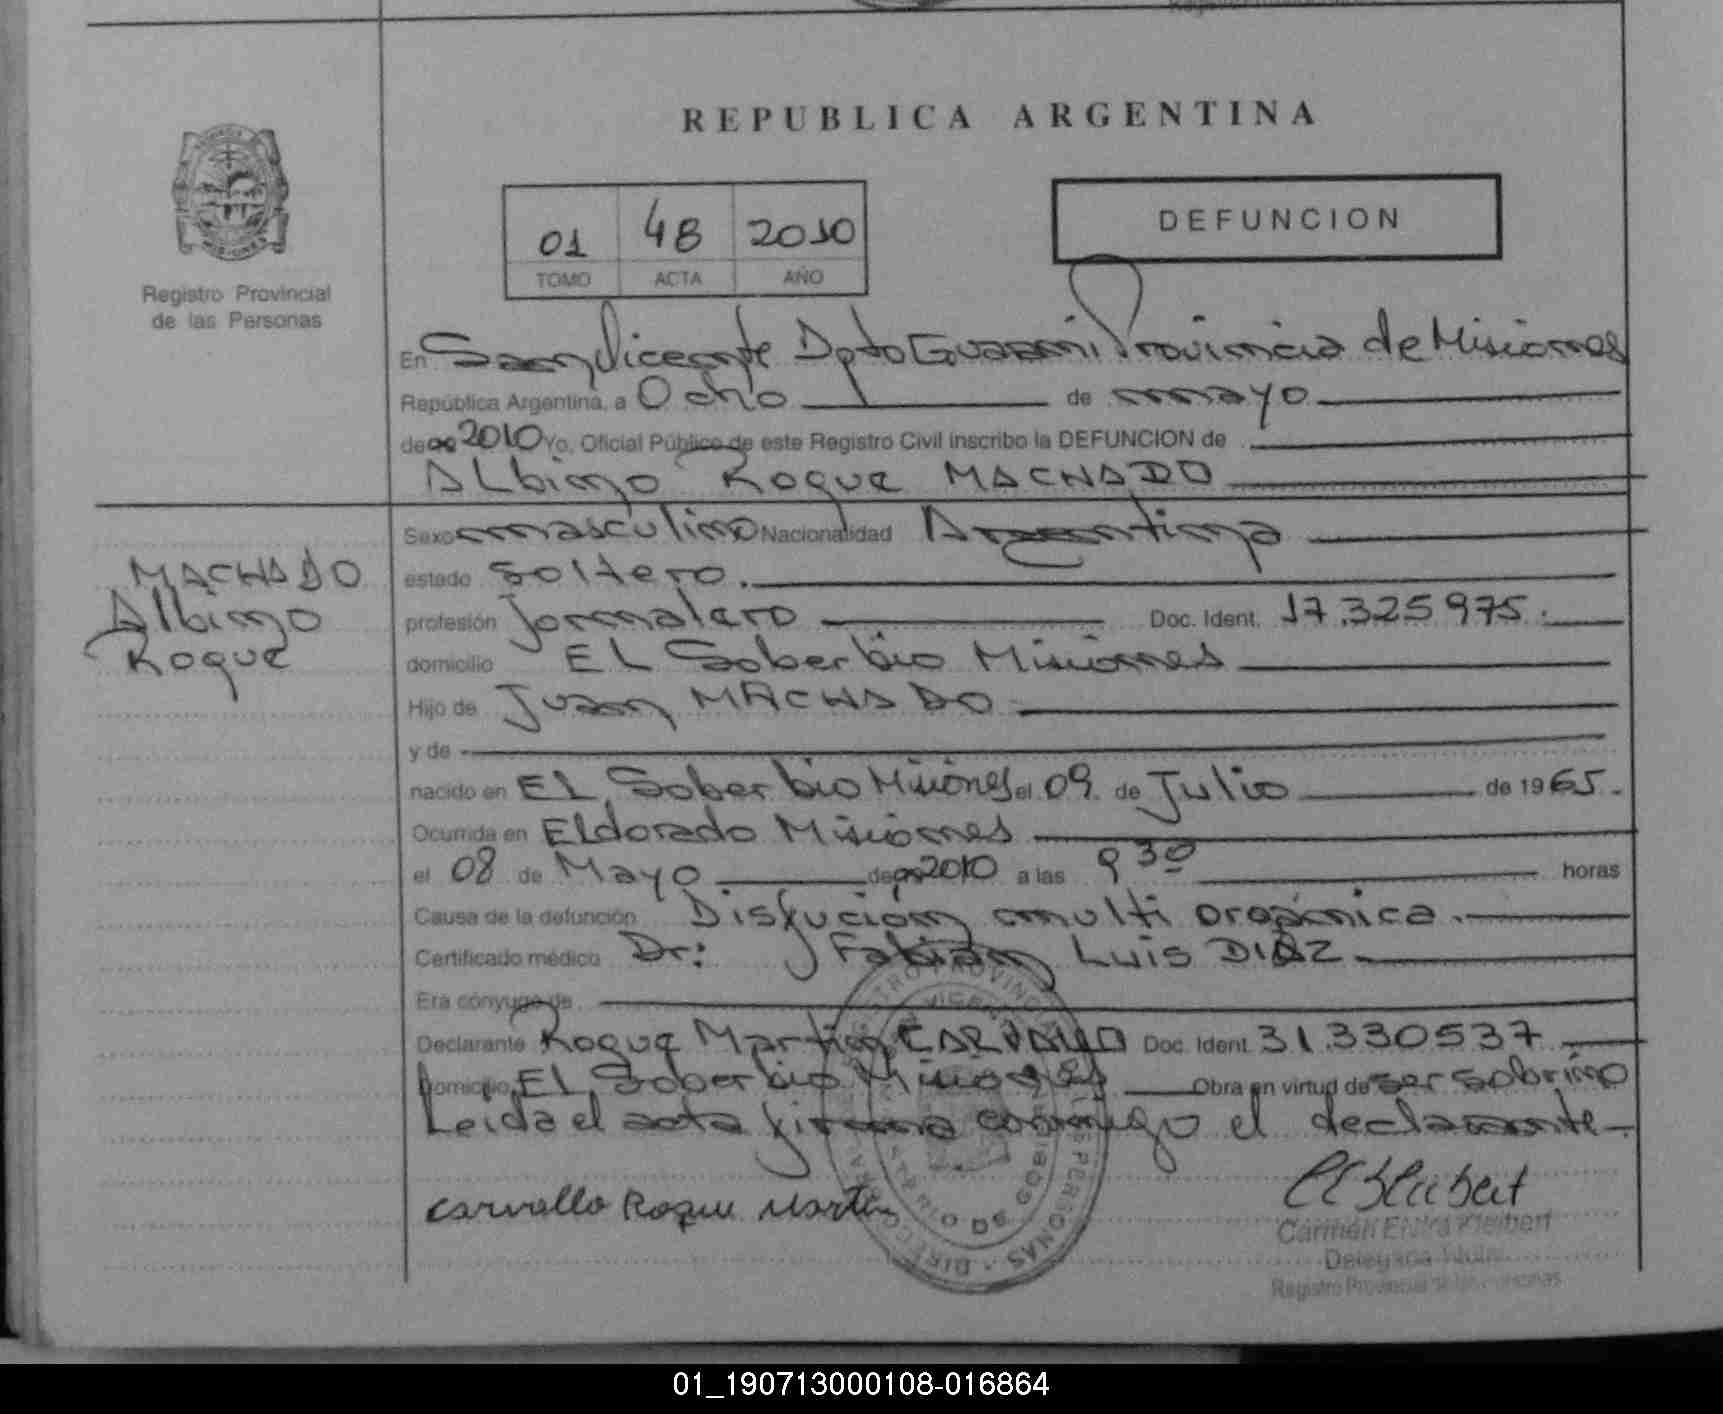 REPUBLICA ARGENTINA
01 48 2010
TOMO ACTA AÑO
DEFUNCION
Registro Provincial
de las Personas
En San Vicente Dpto Guarani Provincia de Misiones
República Argentina, a Ocho de mayo
de 2010 Yo, Oficial Público de este Registro Civil inscribo la DEFUNCION de
Albino Roque MACHADO
MACHADO
Albino
Roque
Sexo masculino Nacionalidad Argentina
estado soltero.
profesión Jornalero Doc. Ident. 17.325975.
domicilio EL Soberbio Misiones
Hijo de Juan MACHADO
y de
nacido en EL Soberbio Misiones el 09 de Julio de 1965.
Ocurrida en Eldorado Misiones
el 08 de Mayo de 2010 a las 9 30 horas
Causa de la defunción Disfución multi orgánica.
Certificado médico Dr: Fabian Luis DIAZ
Era cónyuge de
Declarante Roque Martin CARVALLO Doc. Ident. 31.330537
Domicilio EL Soberbio Misiones Obra en virtud de ser sobrino
Leida el acta firma conmigo el declarante
Carvallo Roque Martin
Carmen Kleibert
Delegada Titular
Registro Provincial de las Personas
01_190713000108-016864